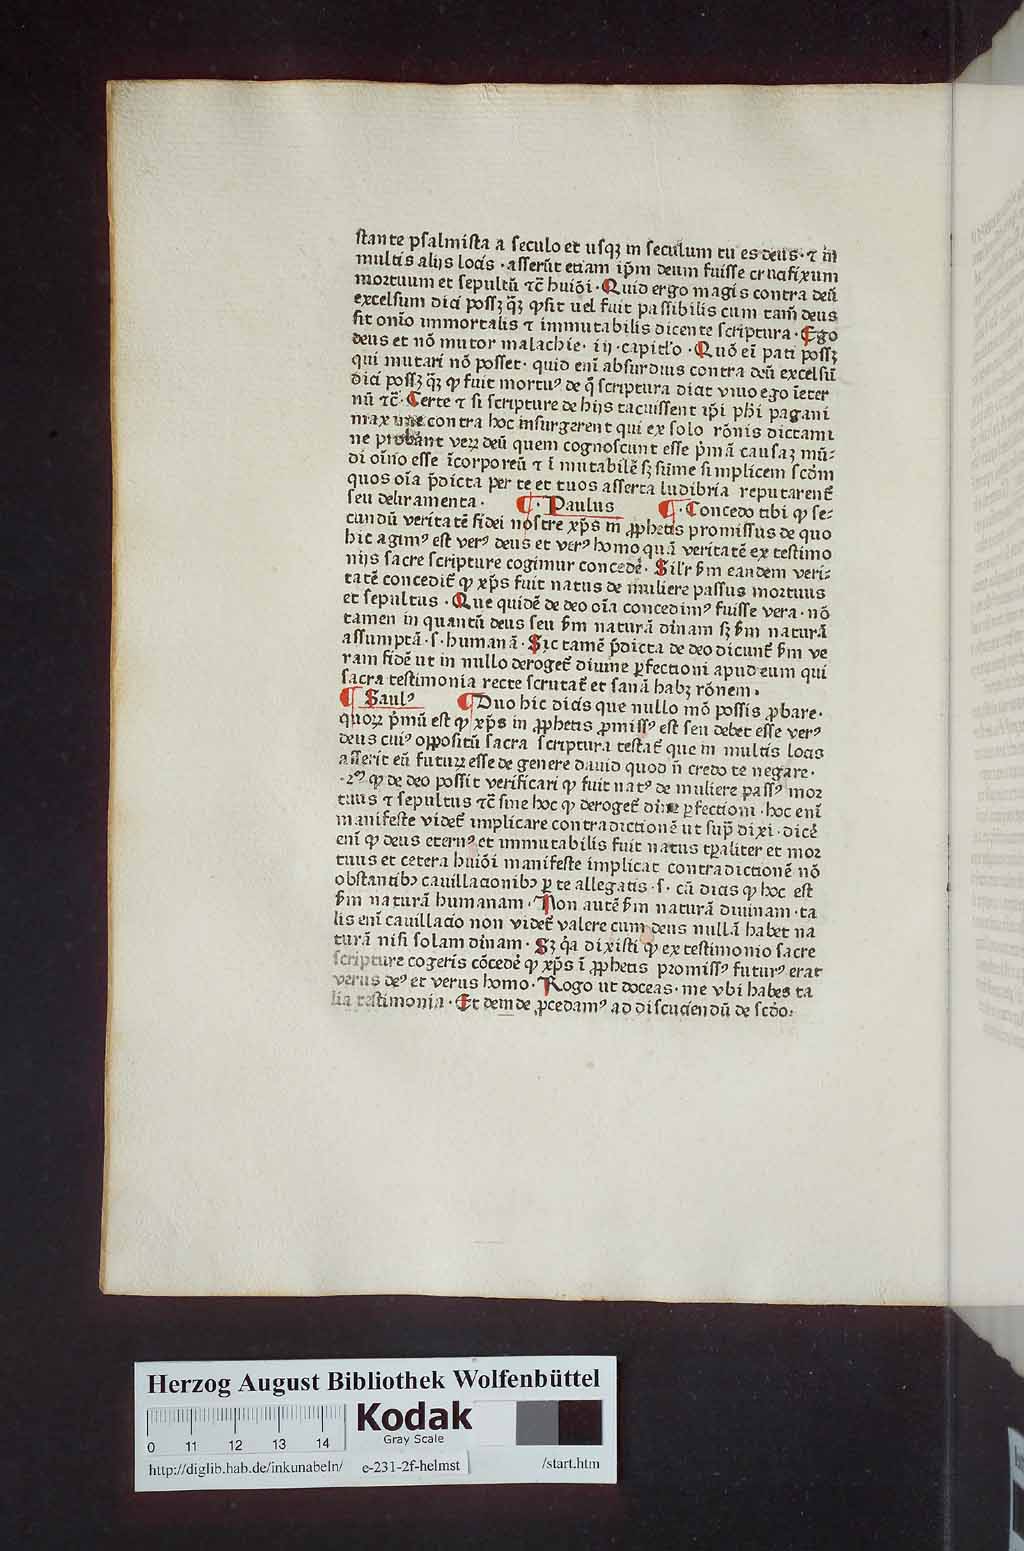 stante psalmista a seculo et usqꝫ in seculum tu es deus· ⁊ in̄
multis alijs locis · asserūt etiam ip̄m deum fuisse crucifixum
mortuum et sepultū ⁊c̄ huiōi · Quid ergo magis contra deū
excelsum dici possꝫ qꝫ̄ ꝙ sit uel fuit passibilis cum tam̄ deus
sit om̄io immortalis ⁊ immutabilis dicente scriptura · Ego
deus et nō mutor malachie· iij ·capitło · Quō ei̅ pati possꝫ
qui mutari nō posset· quid eni̅ absurdius contra deū excelsū
dici possꝫ qꝫ̄ ꝙ fuit mortuꝰ de q̄ scriptura dicat viuo ego īeter
nū ⁊c̄· Certe ⁊ si scripture de hijs tacuissent ip̄i phi̅ pagani
maxime contra hoc insurgerent qui ex solo rōnis dictami
ne probant veꝝ deū quem cognoscunt esse p̄mā causaꝫ mū⸗
di oīno esse īcorporeū ⁊ i̅mutabilē sꝫ sūme simplicem scd̄m
quos oīa p̄dicta per te et tuos asserta ludibria reputarent̄
seu deliramenta · ¶· Paulus ¶· Concedo tibi ꝙ se⸗
cundū veritatē fidei nostre xp̄s in ꝓphetis promissus de quo
hic agimꝰ est verꝰ deus et verꝰ homo quā veritatē ex testimo
nijs sacre scripture cogimur concedē· Silr̄ ẜm eandem veri⸗
tatē concedit̄ ꝙ xp̄s fuit natus de muliere passus mortuus
et sepultus · Que quidē de deo oīa concedimꝰ fuisse vera · nō
tamen in quantū deus seu ẜm naturā diuīnam sꝫ ẜm naturā
assumptā ·s· humanā · Sic tamē p̄dicta de deo dicunt̄ ẜm ve
ram fidē ut in nullo deroget̄ diuine ꝑfectioni apud eum qui
sacra testimonia recte scrutat̄ et sanā habꝫ rōnem·
¶ Saulꝰ ¶Duo hic dicis que nullo mō possis ꝓbare·
quoꝝ p̄mū est ꝙ xp̄s in ꝓphetis ꝓmissꝰ est seu debet esse verꝰ
deus cuiꝰ oppositū sacra scriptura testat̄ que in multis locis
asserit eū futuꝝ esse de genere dauid quod n̄ credo te negare·
·2ꝰ ꝙ de deo possit verificari ꝙ fuit natꝰ de muliere passꝰ mor
tuus ⁊ sepultus ⁊c̄ sine hoc ꝙ deroget̄ diuīe ꝑfectioni · hoc eni̅
manifeste videt̄ implicare contradictionē ut sup̄ dixi · dicē
eni̅ ꝙ deus eternꝰ et immutabilis fuit natus tp̄aliter et mor
tuus et cetera huiōi manifeste implicat contradictionē nō
obstantibꝰ cauillationibꝰ ꝑ te allegatis ·s· cū dicis ꝙ hoc est
ẜm naturā humanam · Non autē ẜm naturā diuinam · ta
lis eni̅ cauillacio non videt̄ valere cum deus nullā habet na
turā nisi solam diuīnam · Sꝫ q̄a dixisti ꝙ ex testimonio sacre
scripture cogeris cōcedē ꝙ xp̄s ī ꝓphetis promissꝰ futurꝰ erat
verus deꝰ et verus homo · Rogo ut doceas · me vbi habes ta
lia testimonia · Et deinde ꝓcedamꝰ ad discuciendū de scd̄o:
Herzog August Bibliothek Wolfenbüttel
Kodak
Gray Scale
0 11 12 13 14
http://diglib.hab.de/inkunabeln/ e-231-2f-helmst /start.htm